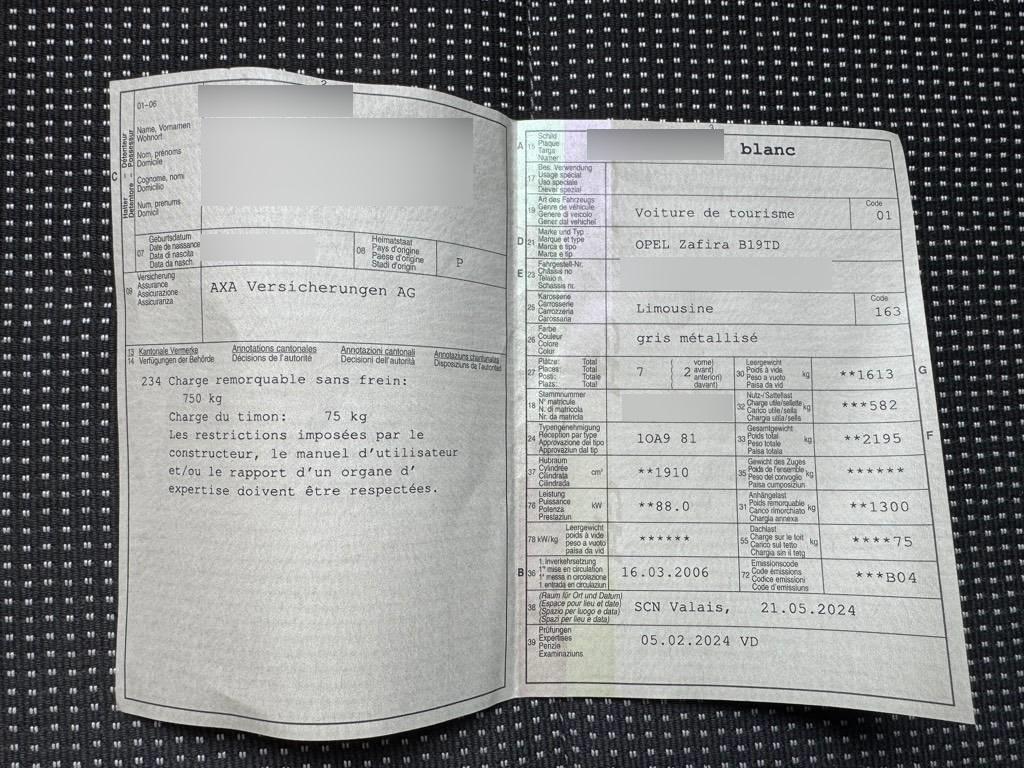 2
01-06
Detenteur
Possesseur
Halter
Detentore
C
Name, Vornamen
Wohnort
Nom, prénoms
Domicile
Cognome, nomi
Domicilio
Num, prenums
Domicil
07
Geburtsdatum
Date de naissance
Data di nascita
Data da nasch.
08
Heimatstaat
Pays d'origine
Paese d'origine
Stadi d'origin
P
09
Versicherung
Assurance
Assicurazione
Assicuranza
AXA Versicherungen AG
13 Kantonale Vermerke
14 Verfügungen der Behörde
Annotations cantonales
Décisions de l'autorité
Annotazioni cantonali
Decisioni dell'autorità
Annotaziuns chantunalas
Disposiziuns da l'autoritad
234 Charge remorquable sans frein:
750 kg
Charge du timon: 75 kg
Les restrictions imposées par le
constructeur, le manuel d'utilisateur
et/ou le rapport d'un organe d'
expertise doivent être respectées.
3
A 15
Schild
Plaque
Targa
Numer
blanc
17
Bes. Verwendung
Usage spécial
Uso speciale
Diever spezial
19
Art des Fahrzeugs
Genre de véhicule
Genere di veicolo
Gener dal vehichel
Voiture de tourisme
Code
01
D 21
Marke und Typ
Marque et type
Marca e tipo
Marca e tip
OPEL Zafira B19TD
E 23
Fahrgestell-Nr.
Châssis no
Telaio n.
Schassis nr.
25
Karosserie
Carrosserie
Carrozzeria
Carossaria
Limousine
Code
163
26
Farbe
Couleur
Colore
Colur
gris métallisé
27
Plätze: Total
Places: Total
Posti: Totale
Plazs: Total
7
( 2
vorne)
avant)
anteriori)
davant)
30
Leergewicht
Poids à vide
Peso a vuoto
Paisa da vid
kg
**1613
G
18
Stammnummer
N° matricule
N. di matricola
Nr. da matricla
32
Nutz-/Sattellast
Charge utile/sellette
Carico utile/sella
Chargia utila/sella
kg
***582
24
Typengenehmigung
Réception par type
Approvazione del tipo
Approvaziun dal tip
1OA9 81
33
Gesamtgewicht
Poids total
Peso totale
Paisa totala
kg
**2195
F
37
Hubraum
Cylindrée
Cilindrata
Cilindrada
cm³
**1910
35
Gewicht des Zuges
Poids de l'ensemble
Peso del convoglio
Paisa cumposiziun
kg
******
76
Leistung
Puissance
Potenza
Prestaziun
kW
**88.0
31
Anhängelast
Poids remorquable
Carico rimorchiato
Chargia annexa
kg
**1300
78 kW/kg
Leergewicht
poids à vide
peso a vuoto
paisa da vid
******
55
Dachlast
Charge sur le toit
Carico sul tetto
Chargia sin il tetg
kg
****75
B 36
1. Inverkehrsetzung
1re mise en circulation
1a messa in circolazione
1. entrada en circulaziun
16.03.2006
72
Emissionscode
Code émissions
Codice emissioni
Code d'emissiuns
***B04
38
(Raum für Ort und Datum)
(Espace pour lieu et date)
(Spazio per luogo e data)
(Spazi per lieu e data)
SCN Valais, 21.05.2024
39
Prüfungen
Expertises
Perizie
Examinaziuns
05.02.2024 VD